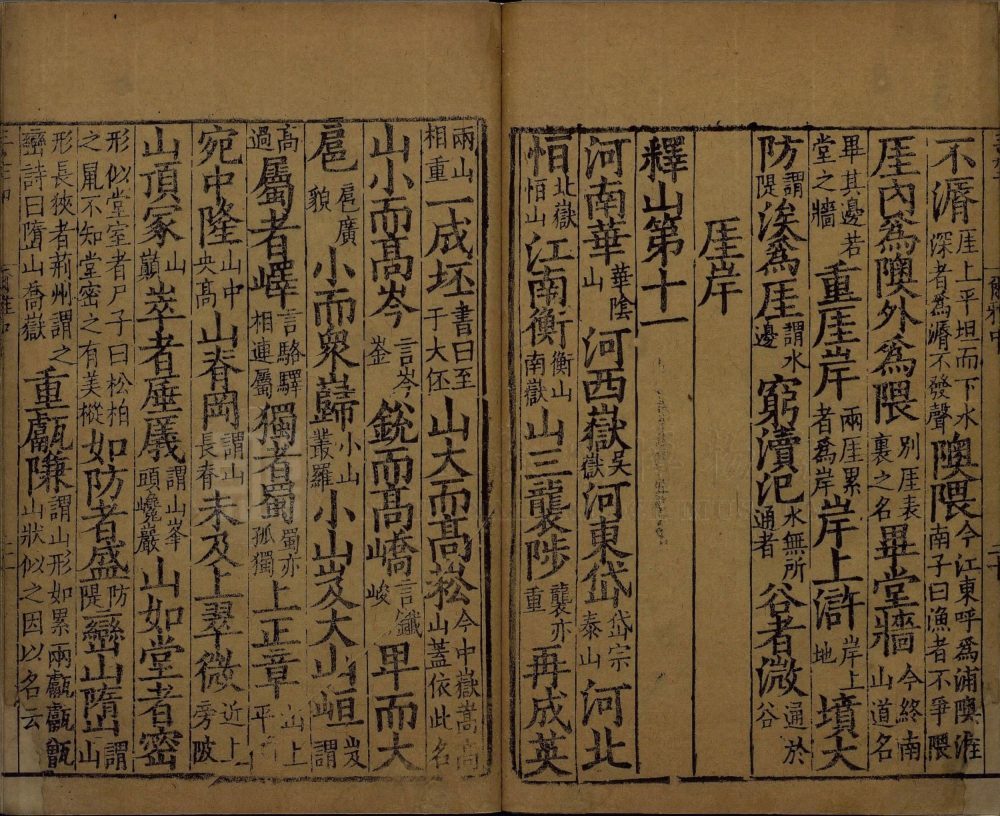 不漘厓上平坦而下水深者為漘不發聲隩隈今江東呼為浦隩淮南子曰漁者不爭隈
厓內為隩外為隈別厓表裏之名畢堂牆今終南山道名
畢其邊若堂之牆重厓岸兩厓累者為岸岸上滸岸上地墳大
防謂隄涘為厓謂水邊窮瀆汜水無所通者谷者溦通於谷
厓岸
釋山第十一
河南華華陰山河西嶽吳嶽河東岱岱宗泰山河北
恒北嶽恒山江南衡衡山南嶽山三襲陟襲亦重再成英
兩山相重一成坯書曰至于大伾山大而高崧今中嶽嵩高山蓋依此名
山小而高岑言岑崟銳而高嶠言鑯峻卑而大
扈扈廣貌小而眾巋小山叢羅小山岌大山峘岌謂
高過屬者嶧言駱驛相連屬獨者蜀蜀亦孤獨上正章山上平
宛中隆山中央高山脊岡謂山長脊未及上翠微近上旁陂
山頂冢山巔崒者厜㕒謂山峯頭巉巖山如堂者密
形似堂室者尸子曰松柏之鼠不知堂密之有美樅如防者盛防隄巒山墮謂山
形長狹者荊州謂之巒詩曰墮山喬嶽重甗隒謂山形如累兩甗甗甑山狀似之因以名云